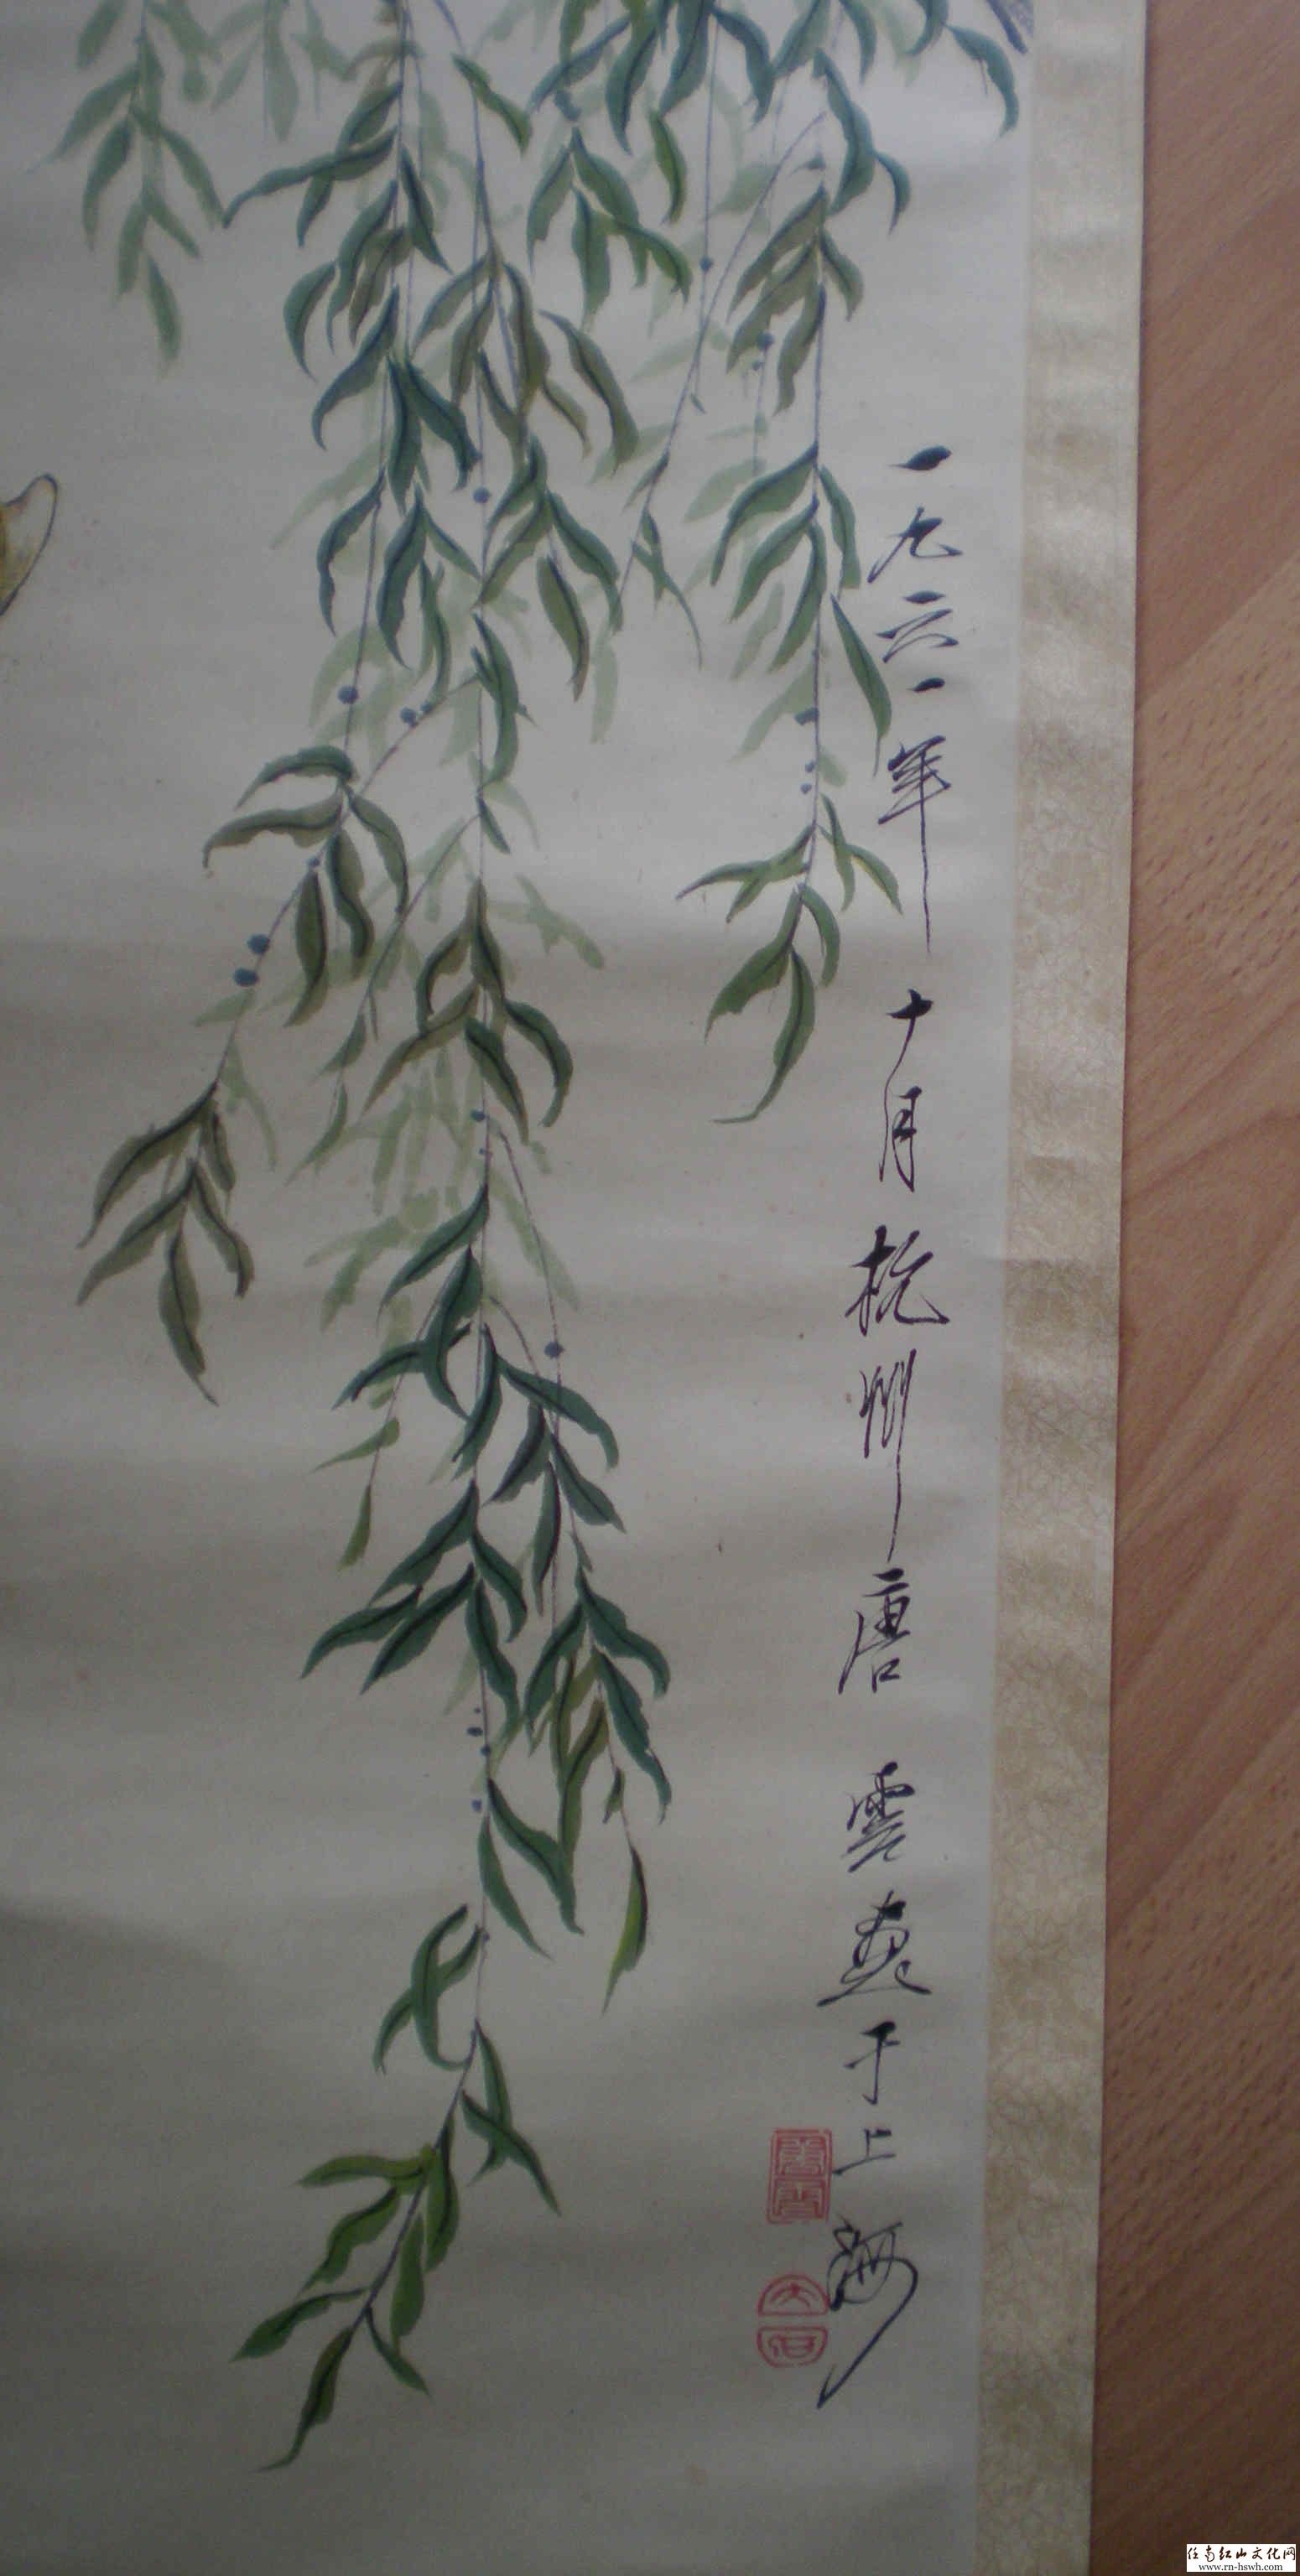 一九六一年十月杭州唐雲畫于上海
唐雲
大石
任南红山文化网
www.rn-hswh.com